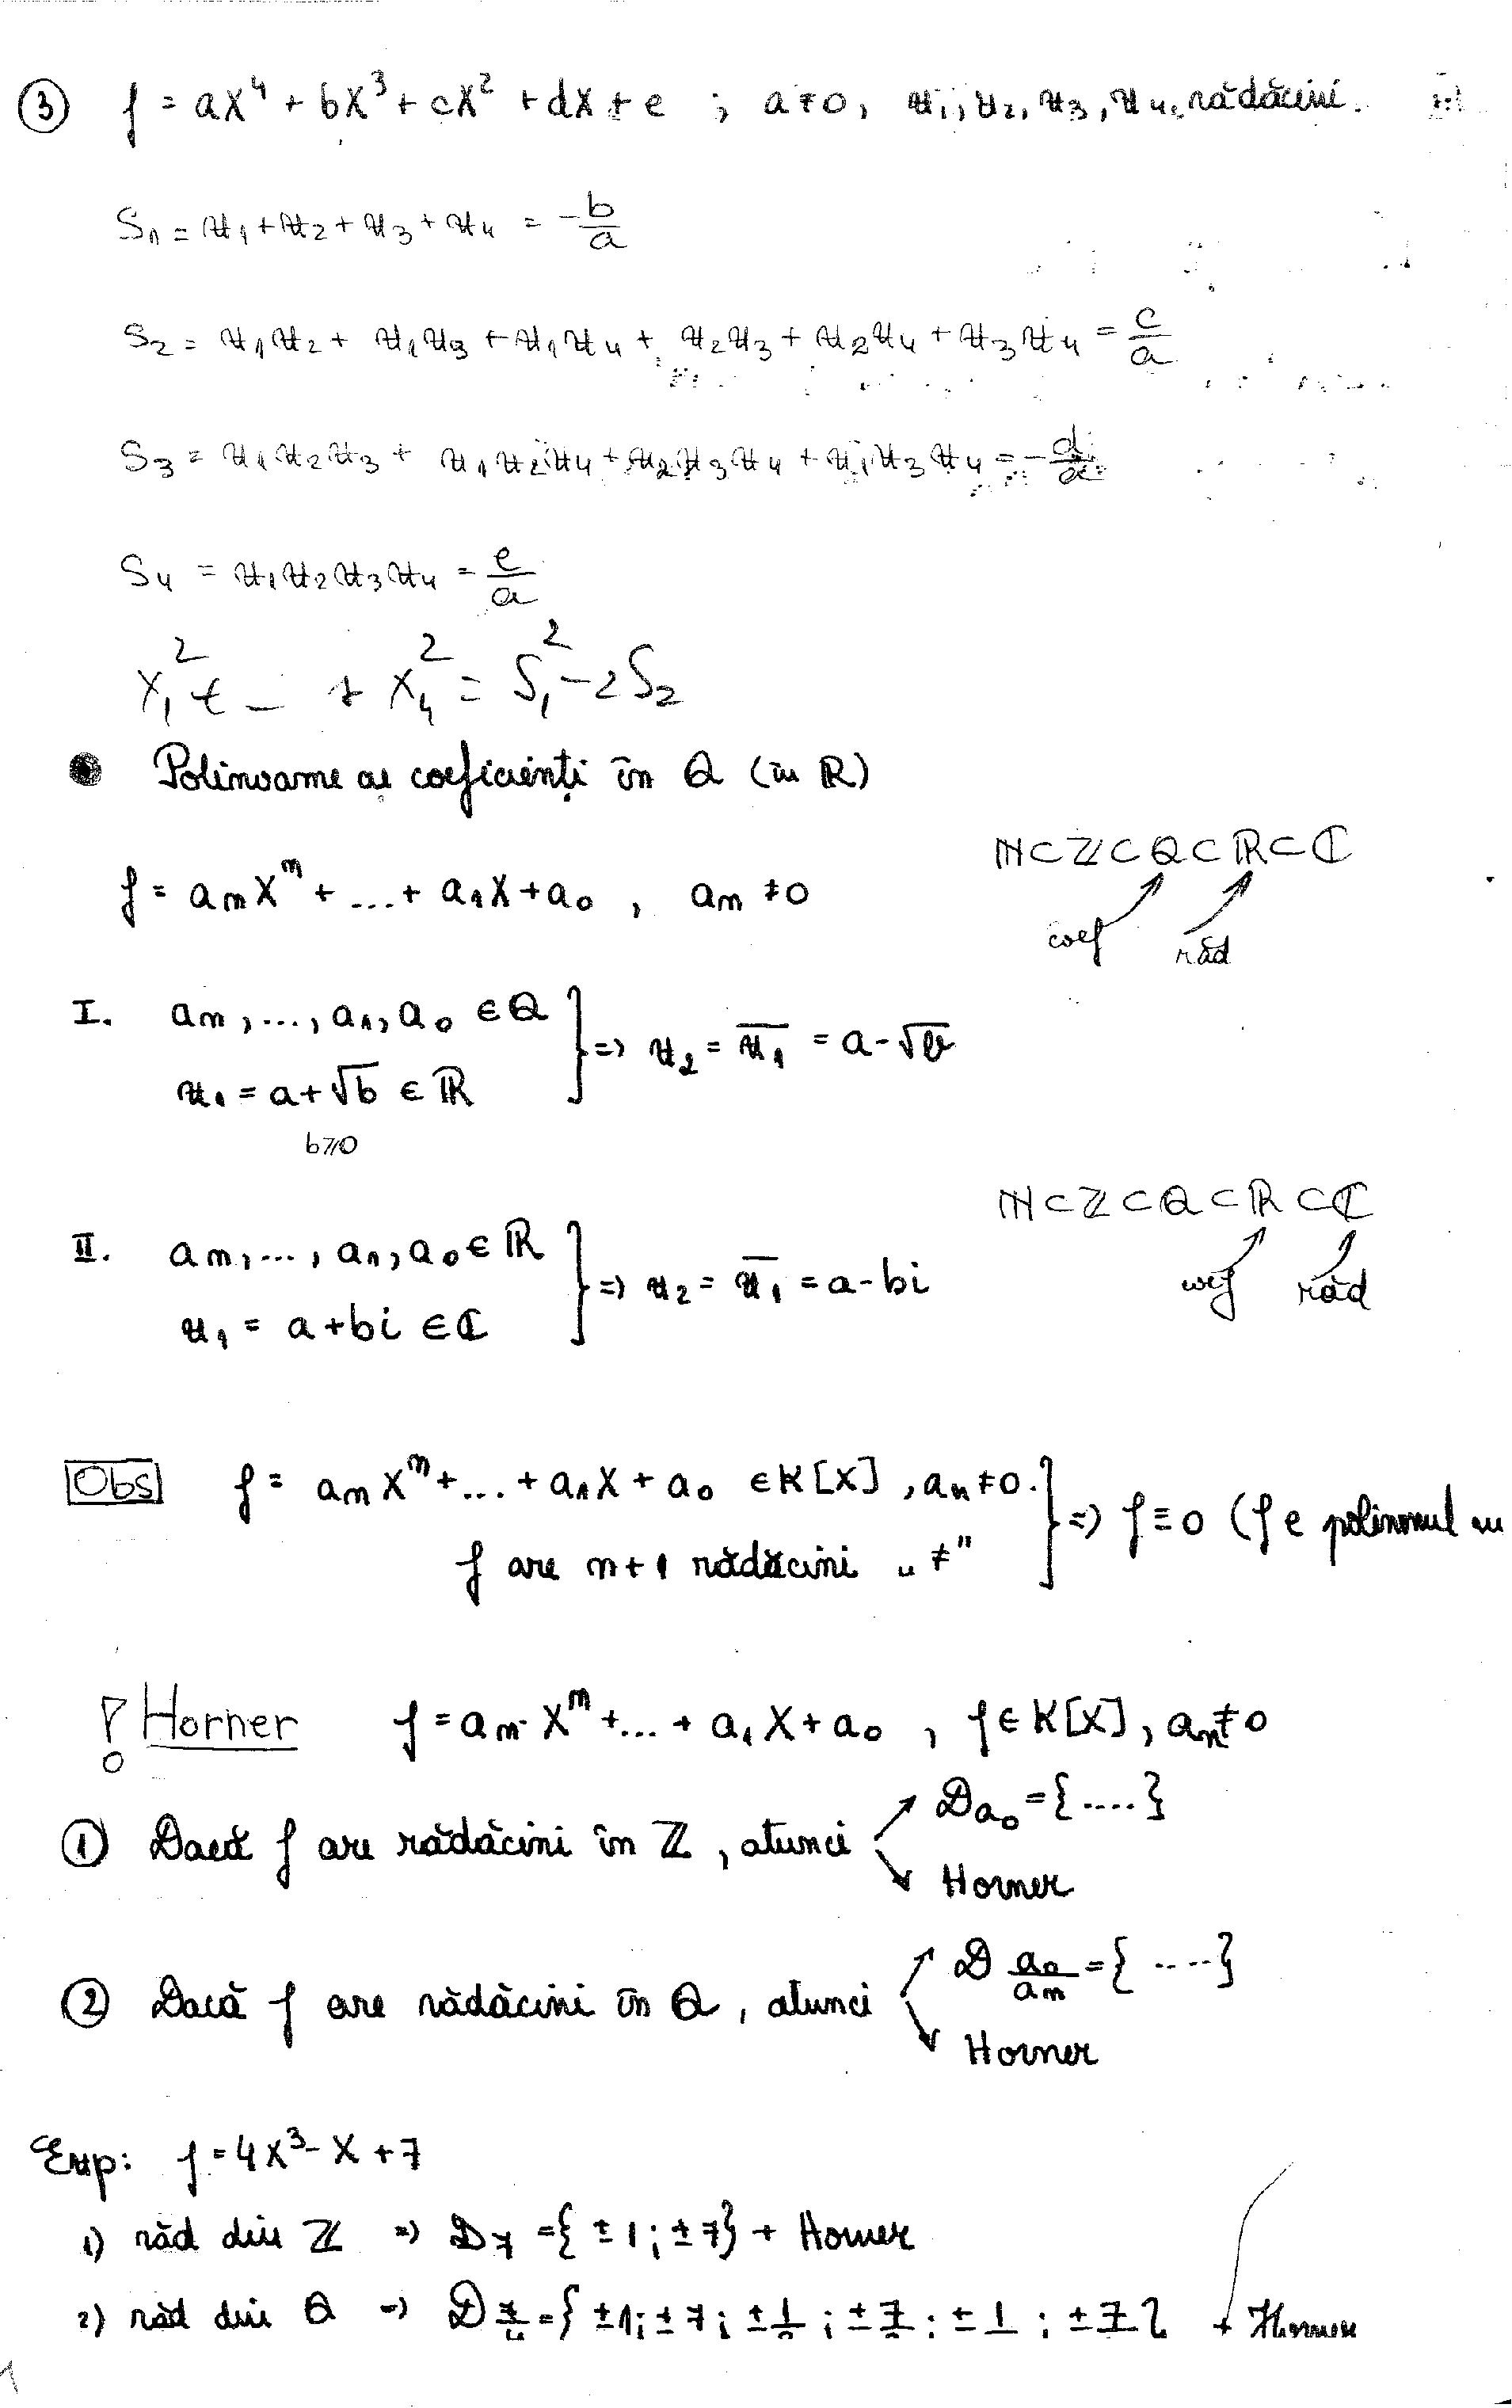 ③ f = aX⁴ + bX³ + cX² + dX + e ; a≠0, x₁, x₂, x₃, x₄ rădăcini.
S₁ = x₁ + x₂ + x₃ + x₄ = -b/a
S₂ = x₁x₂ + x₁x₃ + x₁x₄ + x₂x₃ + x₂x₄ + x₃x₄ = c/a
S₃ = x₁x₂x₃ + x₁x₂x₄ + x₂x₃x₄ + x₁x₃x₄ = -d/a
S₄ = x₁x₂x₃x₄ = e/a
x₁² + _ + x₄² = S₁² - 2S₂
• Polinoame cu coeficienți în Q (în ℝ)
ℕ⊂ℤ⊂Q⊂ℝ⊂ℂ
f = aₙXⁿ + ... + a₁X + a₀ , aₙ ≠ 0
coef răd
I. aₙ, ..., a₁, a₀ ∈ Q
x₁ = a+√b ∈ ℝ } => x₂ = x̄₁ = a-√b
b≥0
ℕ⊂ℤ⊂Q⊂ℝ⊂ℂ
II. aₙ, ..., a₁, a₀ ∈ ℝ
x₁ = a+bi ∈ ℂ } => x₂ = x̄₁ = a-bi
coef răd
Obs f = aₙXⁿ + ... + a₁X + a₀ ∈ K[X], aₙ≠0.
f are n+1 rădăcini „≠" } => f≡0 (f e polinomul
! Horner f = aₙ·Xⁿ + ... + a₁X + a₀ , f∈K[X], aₙ≠0
① Dacă f are rădăcini în ℤ, atunci D a₀ = {....}
Horner
② Dacă f are rădăcini în Q, atunci D a₀/aₙ = {....}
Horner
Exp: f = 4X³ - X + 7
1) răd din ℤ => D₇ = {±1; ±7} + Horner
2) răd din Q => D 7/4 = {±1; ±7; ±1/ ; ±7/ ; ±1/ ; ±7/ } + Horner